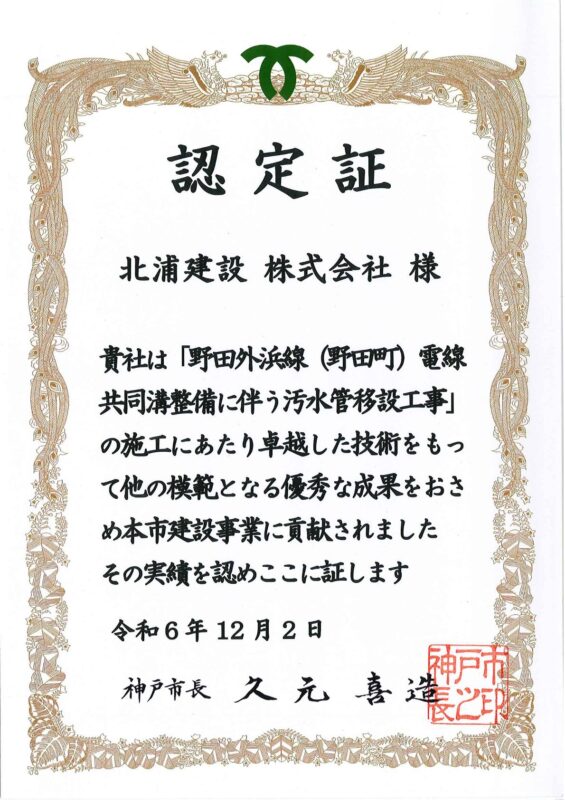 認定証
北浦建設 株式会社 様
貴社は「野田外浜線（野田町）電線
共同溝整備に伴う汚水管移設工事」
の施工にあたり卓越した技術をもっ
て他の模範となる優秀な成果をおさ
め本市建設事業に貢献されました
その実績を認めここに証します
令和6年12月2日
神戸市長 久元喜造
神戸市長之印